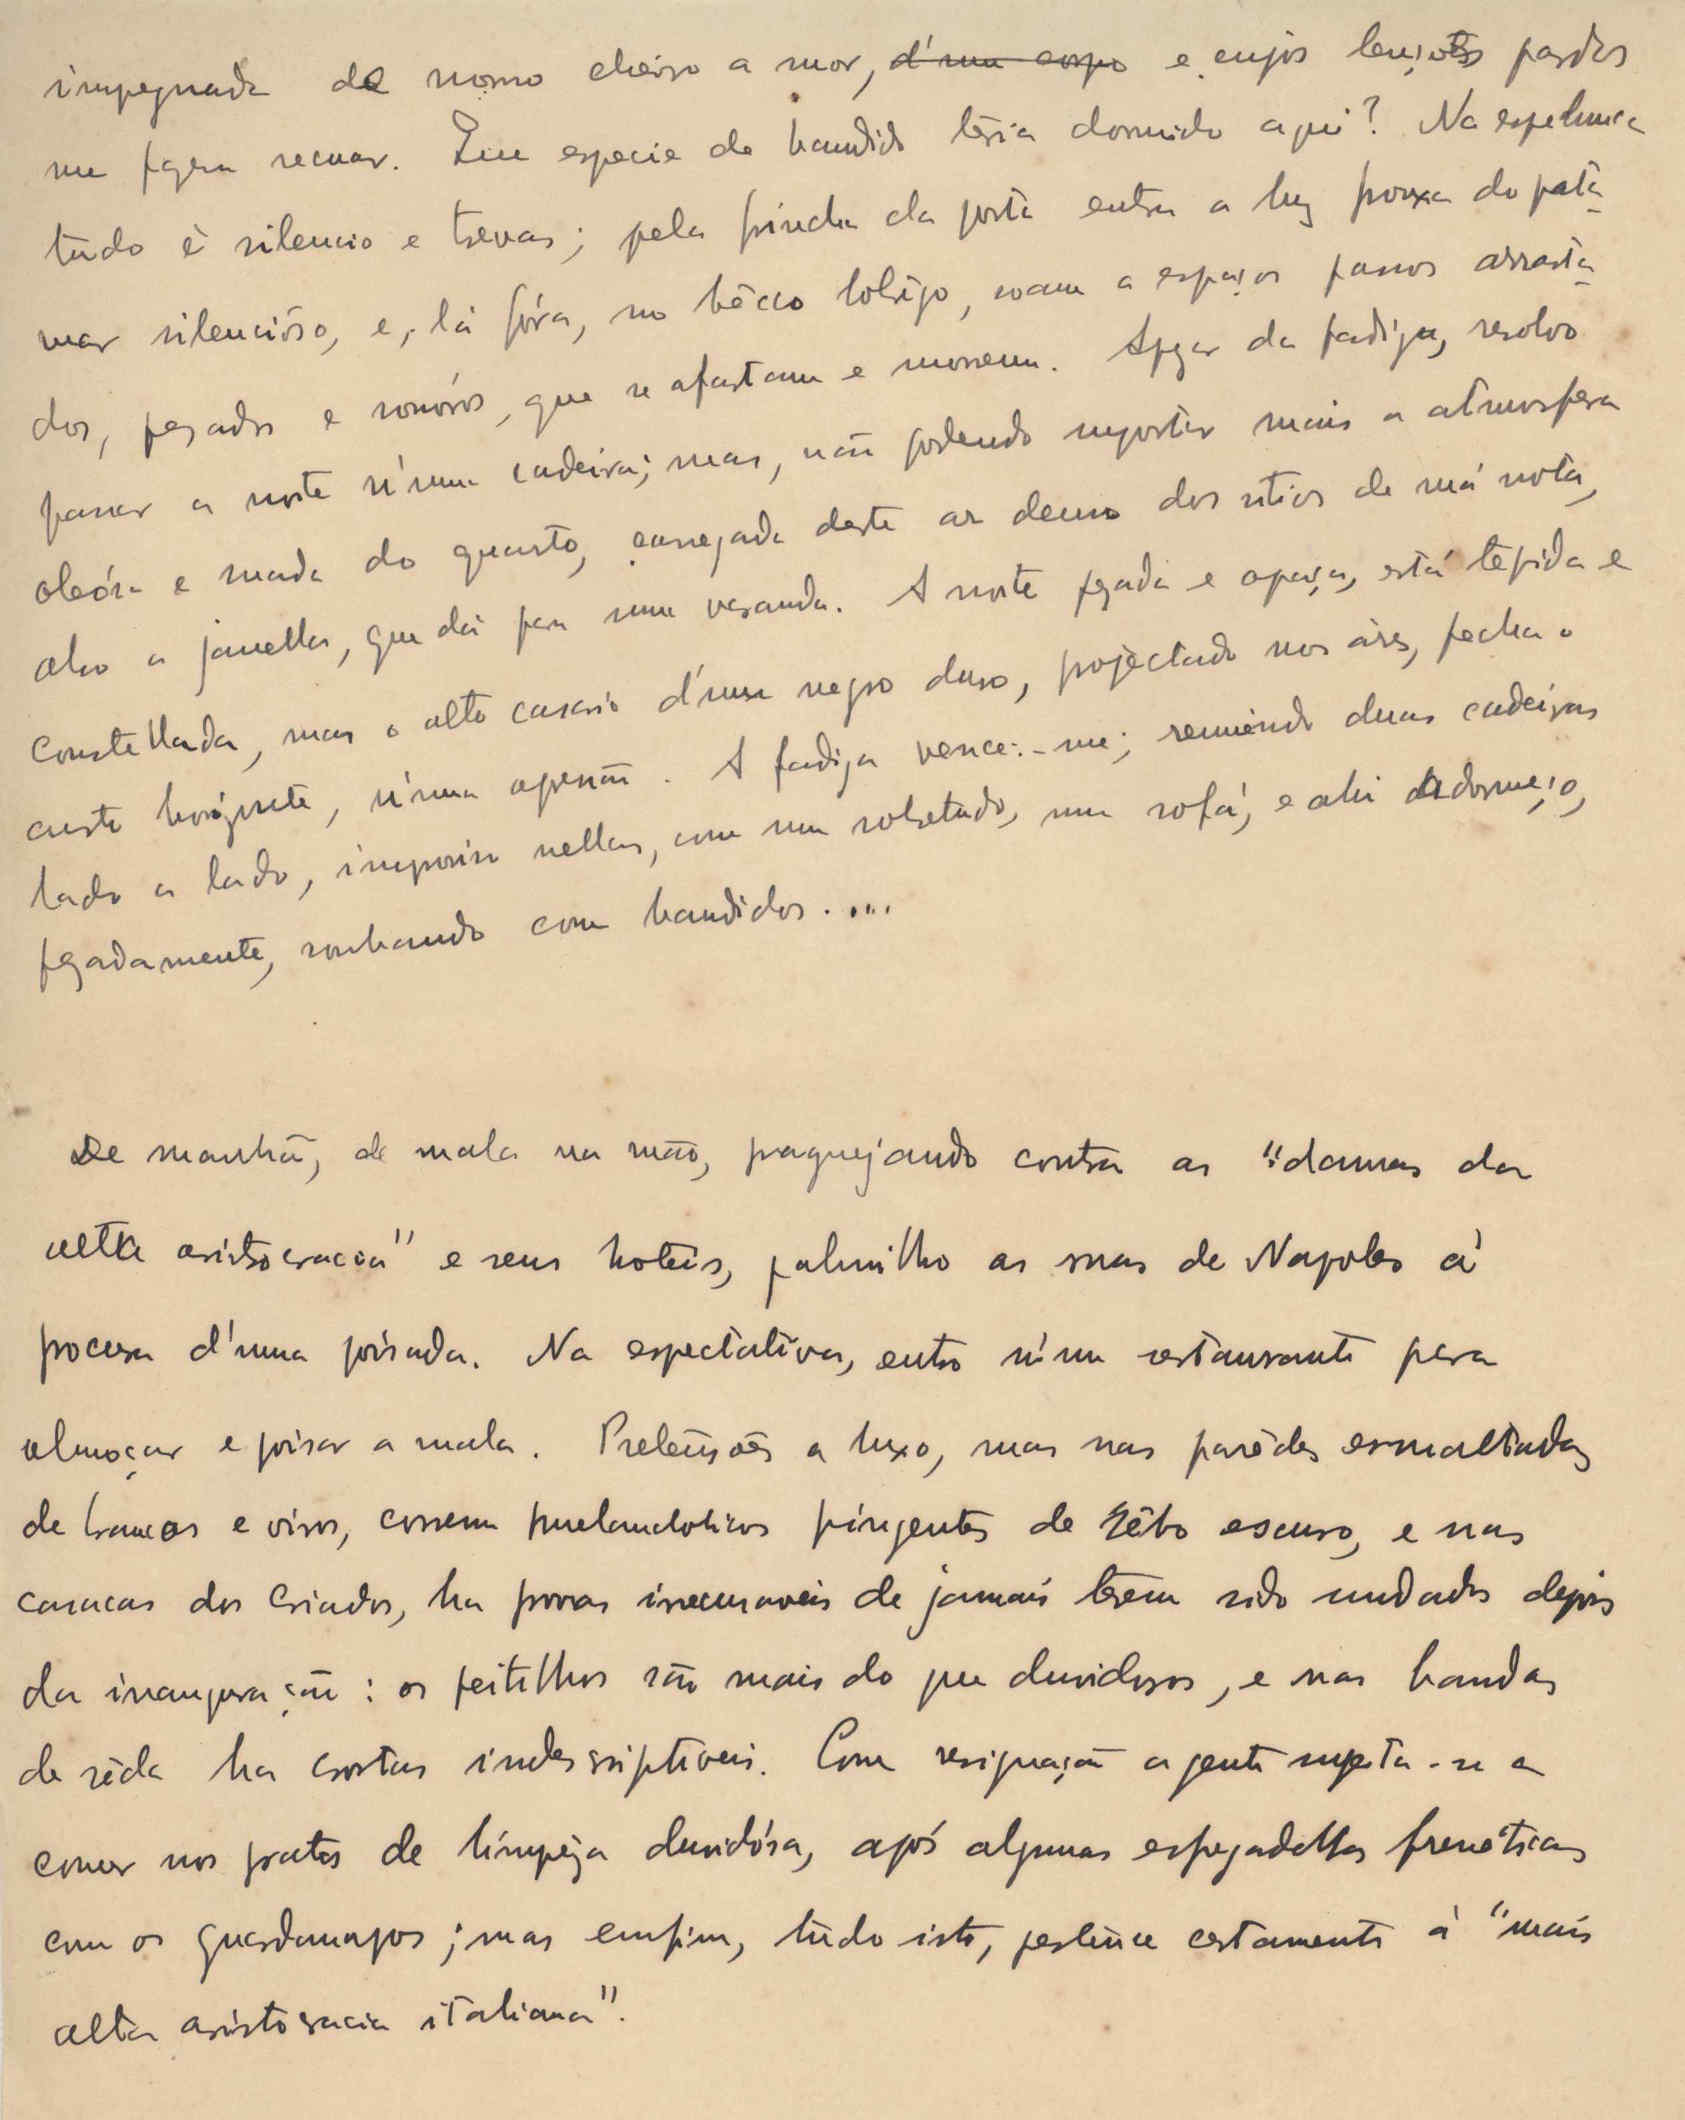 impregnada de morno cheiro a mor, d'um corpo e cujos lençoes pardos
me fazem recuar. Que especie de bandido teria dormido aqui? Na espelunca
tudo é silencio e trevas; pela frincha da porta entra a luz frouxa do pata-
mar silencióso, e, lá fóra, no bêcco lobrego, soam a espaços passos arrasta-
dos, pezados e sonóros, que se afastam e morrem. Apezar da fadiga, resolvo
passar a noite n'uma cadeira; mas, não podendo suportar mais a atmosfera
oleósa e
do quarto, carregada deste ar denso dos sitios de má nota,
abro a janella, que dá para uma varanda. A noite pezada e opaca, está tepida e
constellada, mas o alto casario d'um negro duro, projectado nos áres, fecha o
curto horizonte, n'uma opressão. A fadiga vence-me; reunindo duas cadeiras
lado a lado, improviso nellas, com um sobretudo, um sofá, e ahi adormeço,
pezadamente, sonhando com bandidos....
De manhã, de mala na mão, praguejando contra as "damas da
alta aristocracia" e seus hoteis, palmilho as ruas de Napoles á
procura d'uma poisada. Na espectativa, entro n'um restaurante para
almoçar e poisar a mala. Pretensões a luxo, mas nas parêdes esmaltadas
de brancos e oiros, correm melancholicos pingentes de sêbo escuro, e nas
casacas dos criados, ha provas irrecusaveis de jamais terem sido mudadas depois
da inauguração: os peitilhos são mais do que duvidosos, e nas bandas
de sêda ha crostas indescriptiveis. Com resignação a gente sujeita-se a
comer nos pratos de limpêza duvidósa, após algumas esfregadellas frenéticas
com os guardanapos; mas emfim, tudo isto, pertence certamente á "mais
alta aristocracia italiana".